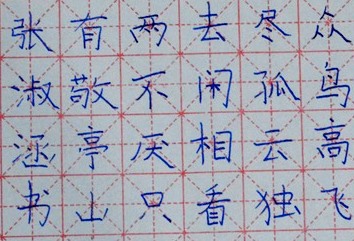 众鸟高飞
尽孤云独
去闲相看
两不厌只
有敬亭山
张淑涵书